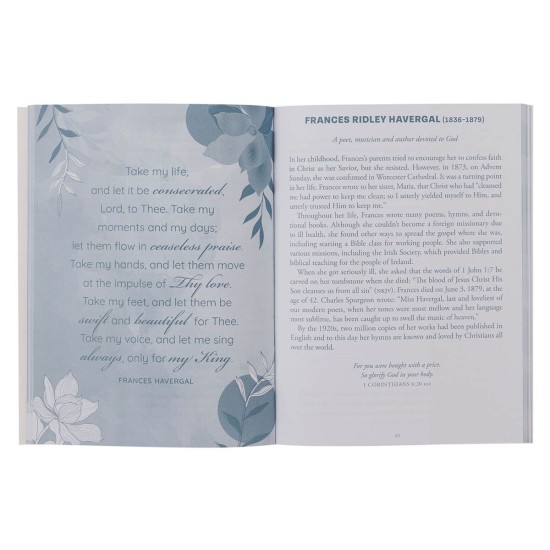 Take my life,
and let it be consecrated,
Lord, to Thee. Take my
moments and my days;
let them flow in ceaseless praise.
Take my hands, and let them move
at the impulse of Thy love.
Take my feet, and let them be
swift and beautiful for Thee.
Take my voice, and let me sing
always, only for my King.
FRANCES HAVERGAL
FRANCES RIDLEY HAVERGAL (1836–1879)
A poet, musician and author devoted to God
In her childhood, Frances's parents tried to encourage her to confess faith
in Christ as her Savior, but she resisted. However, in 1873, on Advent
Sunday, she was confirmed in Worcester Cathedral. It was a turning point
in her life. Frances wrote to her sister, Maria, that Christ who had "cleansed
me had power to keep me clean; so I utterly yielded myself to Him, and
utterly trusted Him to keep me."
Throughout her life, Frances wrote many poems, hymns, and devo-
tional books. Although she couldn't become a foreign missionary due
to ill health, she found other ways to spread the gospel where she was,
including starting a Bible class for working people. She also supported
various missions, including the Irish Society, which provided Bibles and
biblical teaching for the people of Ireland.
When she got seriously ill, she asked that the words of 1 John 1:7 be
carved on her tombstone when she died: "The blood of Jesus Christ His
Son cleanses us from all sin" Frances died on June 3, 1879, at the
age of 42. Charles Spurgeon wrote: "Miss Havergal, last and loveliest of
our modern poets, when her tones were most mellow and her language
most sublime, has been caught up to swell the music of heaven."
By the 1920s, two million copies of her works had been published in
English and to this day her hymns are known and loved by Christians all
over the world.
For you were bought with a price.
So glorify God in your body.
1 CORINTHIANS 6:20